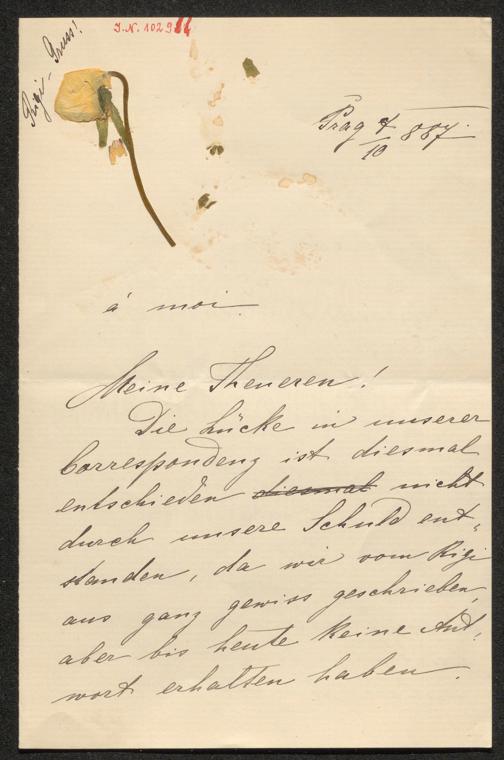 Rigi-Gruss!
J.N. 102984
Prag 7/10 887.
á moi
Meine Theueren!
Die Lücke in unserer
Correspondenz ist diesmal
entschieden diesmal nicht
durch unsere Schuld ent„
standen, da wir vom Rigi
aus ganz gewiss geschrieben,
aber bis heute keine Ant„
wort erhalten haben.